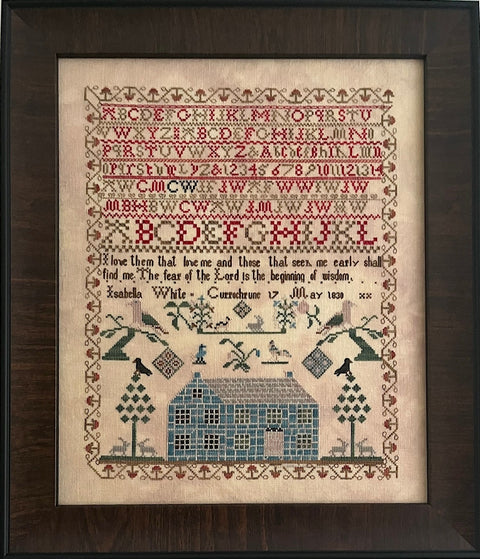 ABCDEFGHIJKLMNOPQRSTU
VWXYZ&ABCDEFGHIJKLMNO
PQRSTUVWXYZ&
qrstuvwxyz&1234567891011121314
AW CM CW JW AW WW FW JW
MBH EW CW JM JW
ABCDEFGHIJKL
I love them that love me and those that seek me early shall
find me The fear of the Lord is the beginning of wisdom
Isabella White Currochrune 17 May 1830 xx